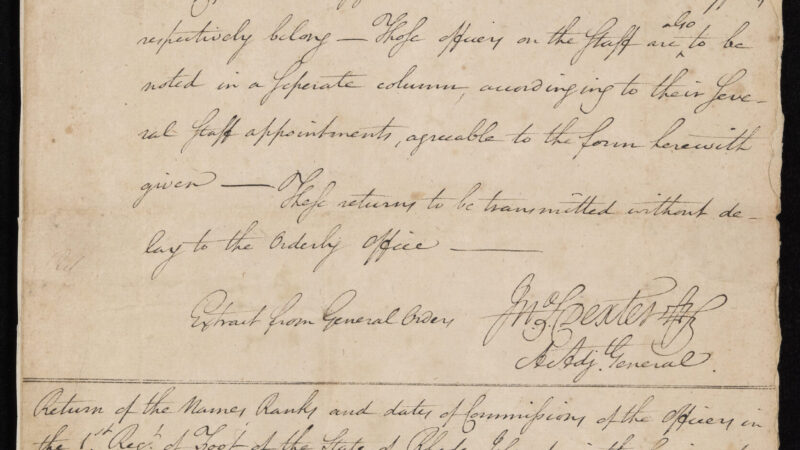 respectively belong — Those officers on the Staff are also to be
noted in a seperate column, accordinging to their seve-
ral Staff appointments, agreable to the form herewith
given — These returns to be transmitted without de-
lay to the Orderly Office —
Extract from General Orders
Jno. S. Dexter
A. Adj. General.
Return of the Names Ranks and dates of Commissions of the Officers in
the 1st Regt. of Foot of the State of Rhode Island in the